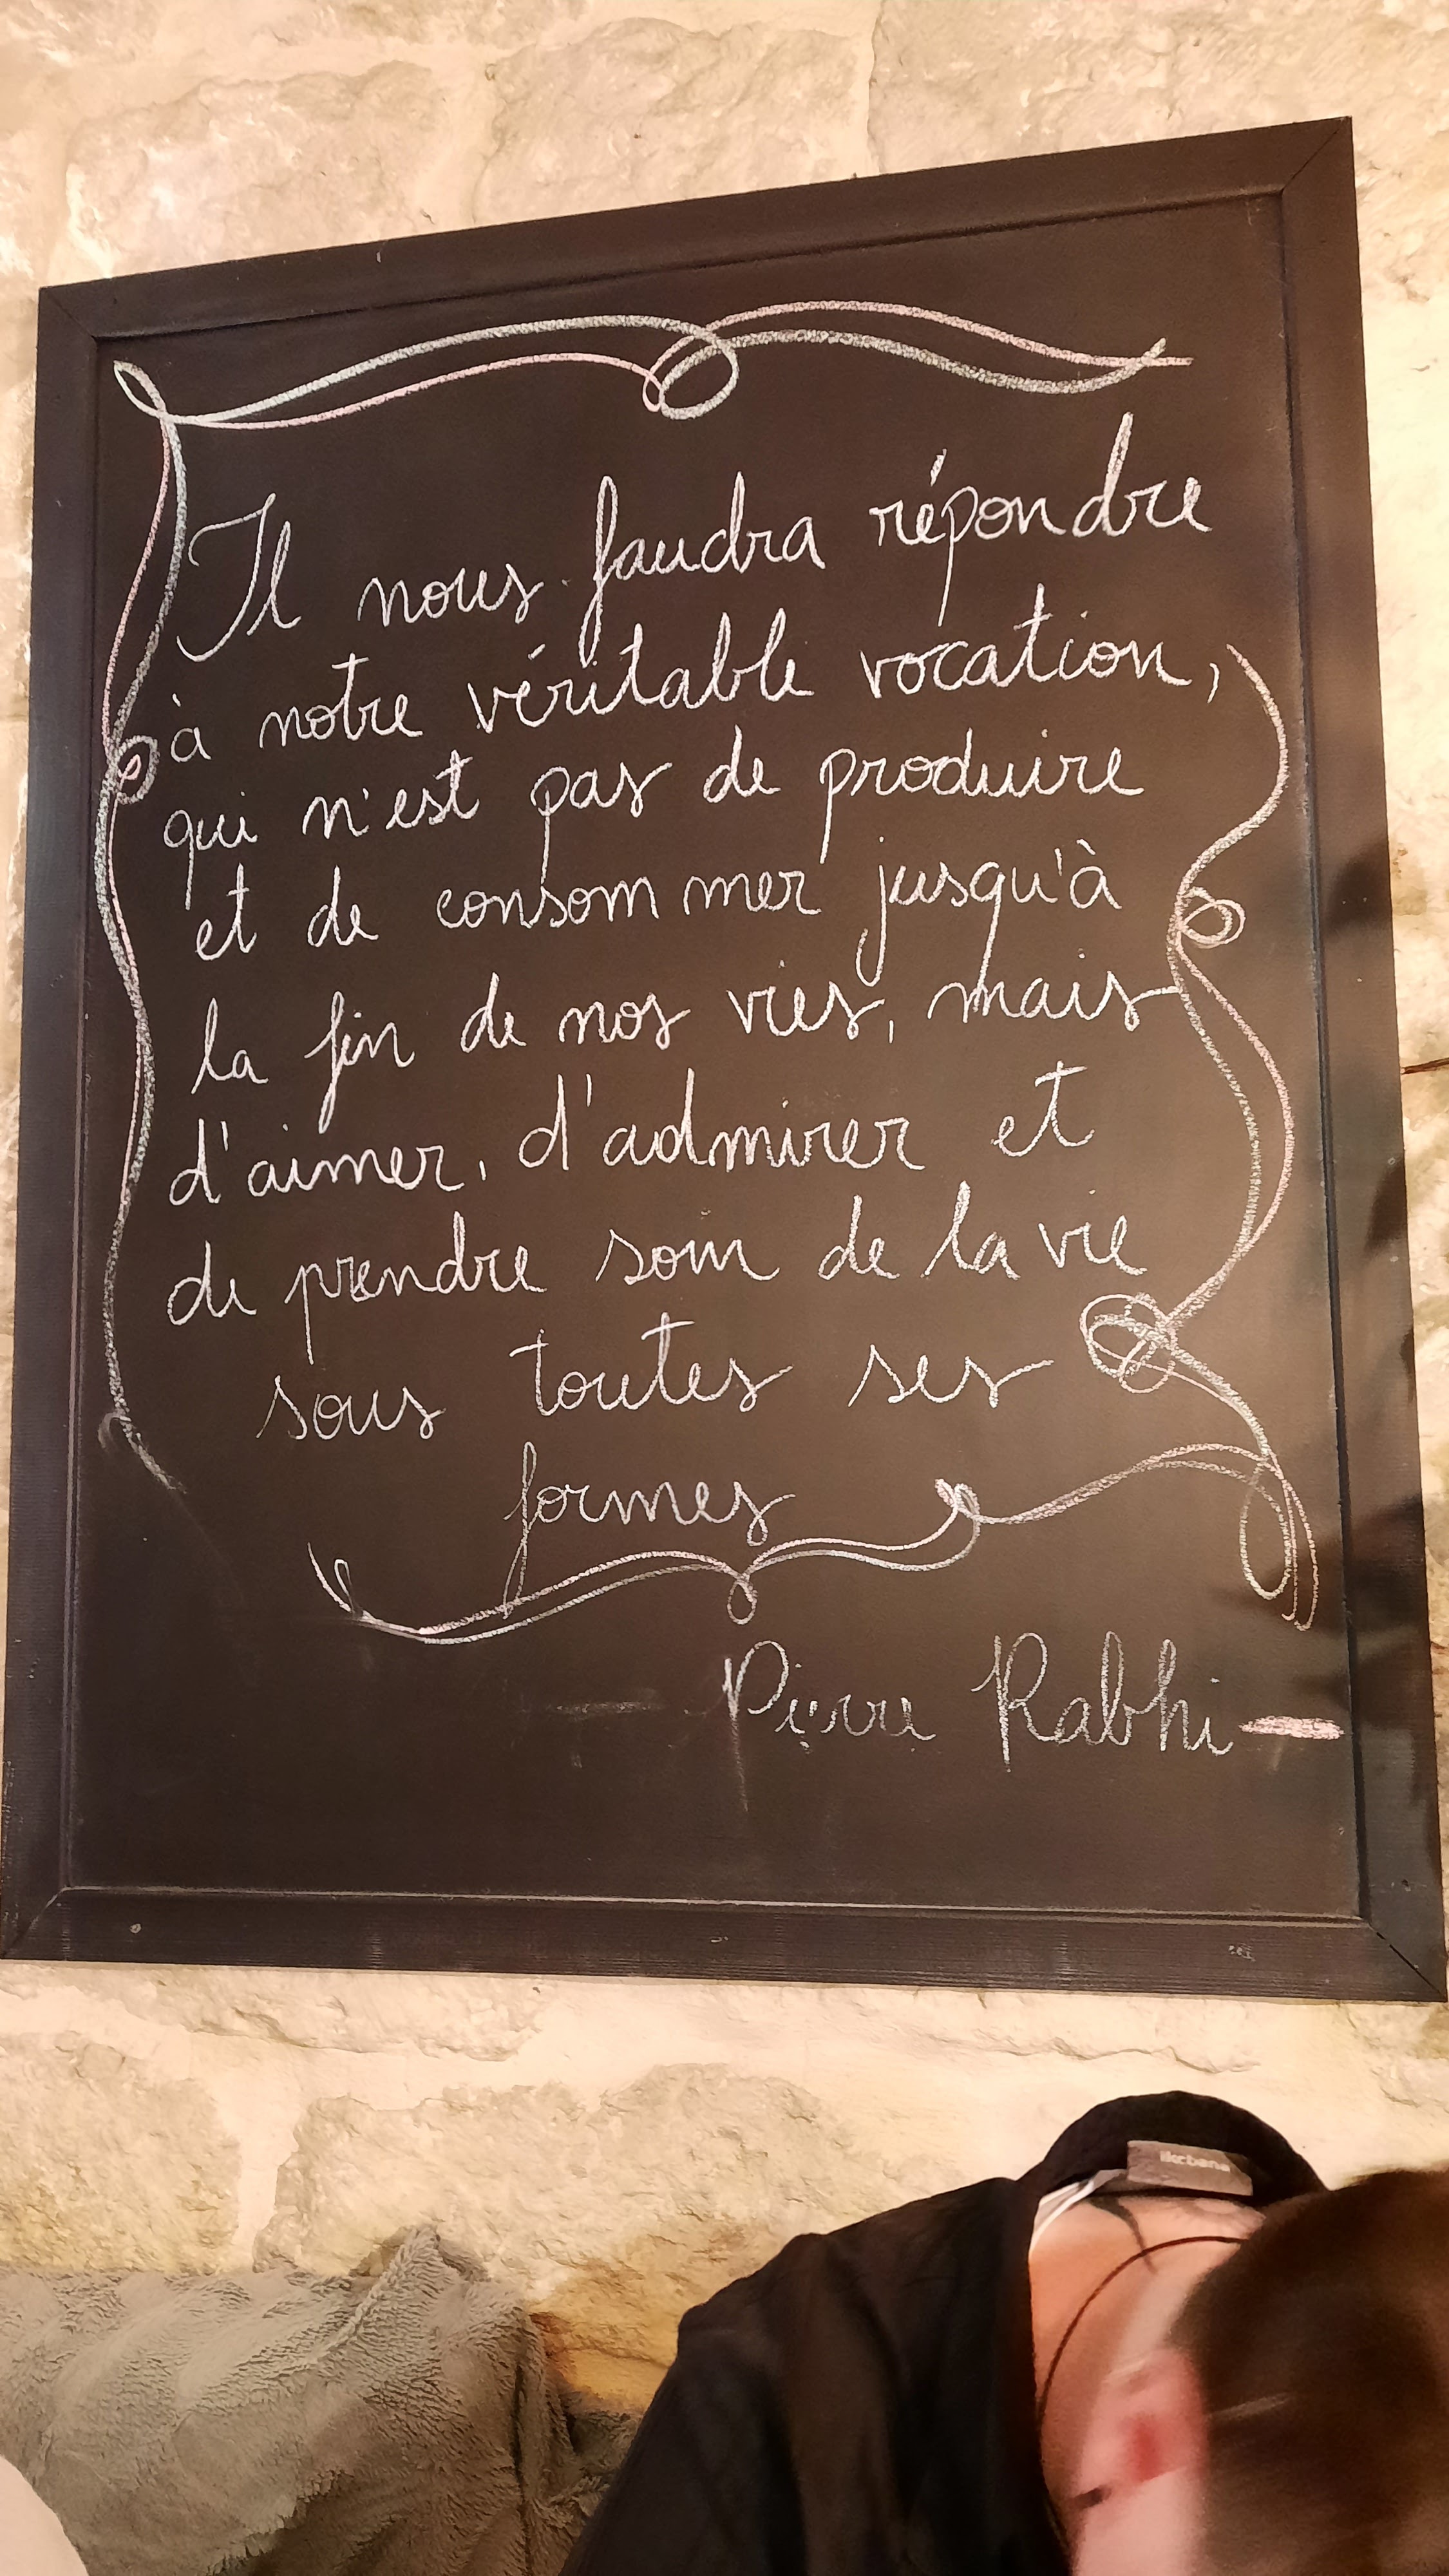 Il nous faudra répondre
à notre véritable vocation,
qui n'est pas de produire
et de consommer jusqu'à
la fin de nos vies, mais
d'aimer, d'admirer et
de prendre soin de la vie
sous toutes ses
formes
Pierre Rabhi